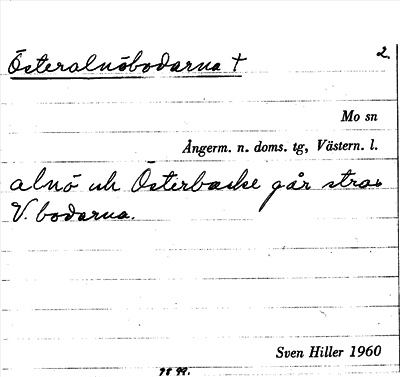 Österalnöbodarna † 2.
Mo sn
Ångerm. n. doms. tg, Västern. l.
alnö och Österbacke går strax
V. bodarna.
Sven Hiller 1960